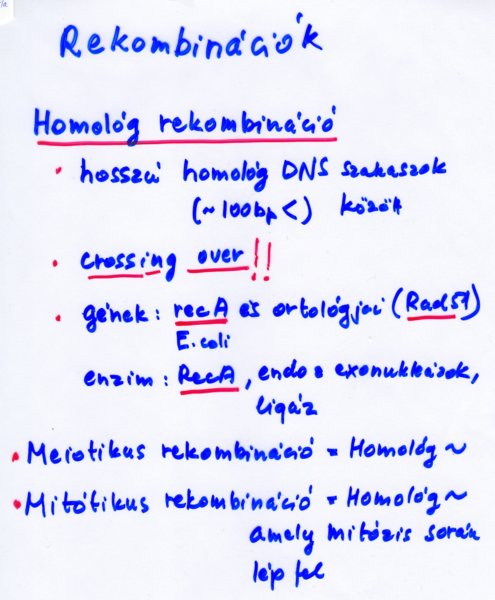 Rekombinációk
Homológ rekombináció
• hosszú homológ DNS szakaszok
(~100bp<) között
• crossing over!!
• gének: recA és ortológjai (Rad51)
E.coli
enzim: RecA, endo s exonukleázok,
ligáz
• Meiotikus rekombináció = Homológ ~
• Mitótikus rekombináció = Homológ ~
amely mitózis során
lép fel